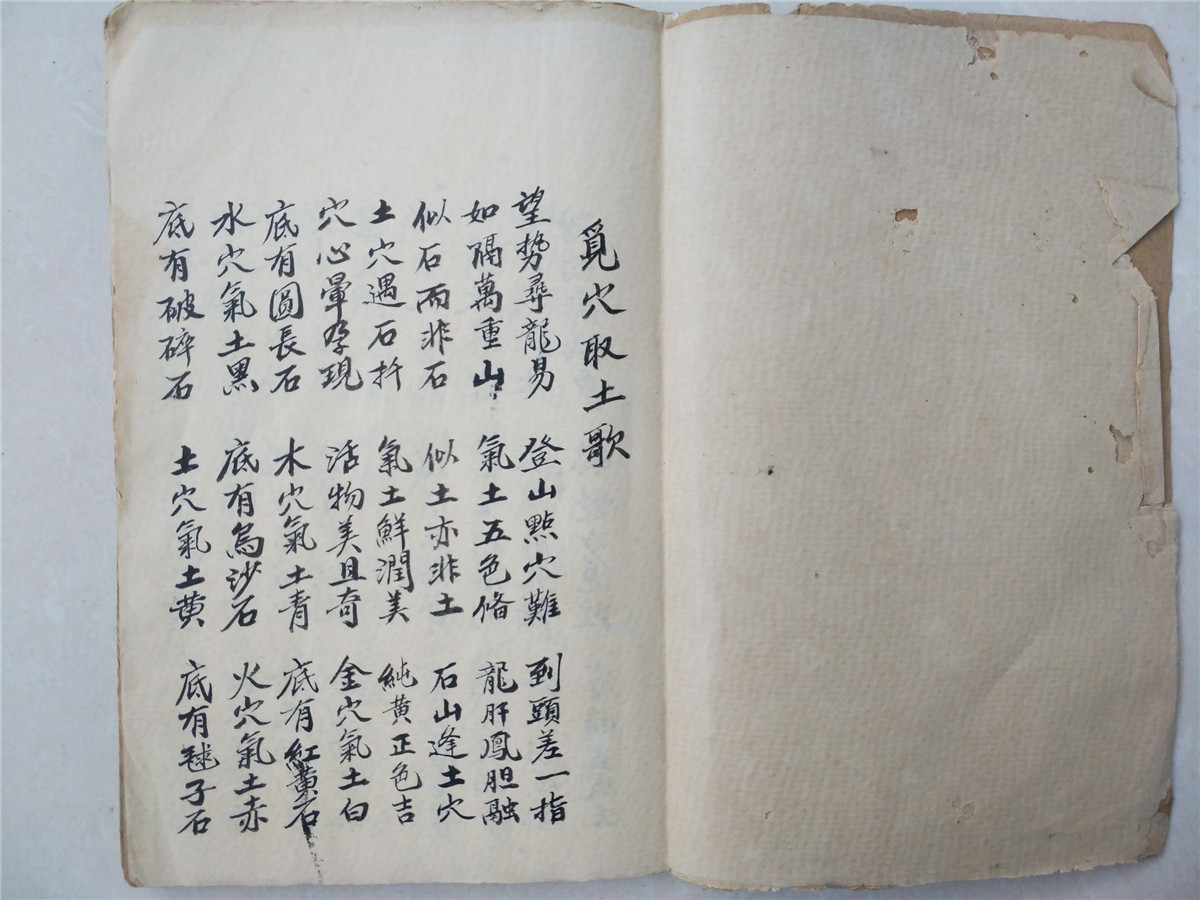 覓穴取土歌
望勢尋龍易 登山點穴難 到頭差一指
如隔萬重山 氣土五色俻 龍肝鳳胆融
似石而非石 似土亦非土 石山逢土穴
土穴遇石扦 氣土鮮潤美 純黄正色吉
穴心暈孕現 活物美且奇 金穴氣土白
底有圓長石 木穴氣土青 底有紅黄石
水穴氣土黑 底有烏沙石 火穴氣土赤
底有破碎石 土穴氣土黄 底有毬子石